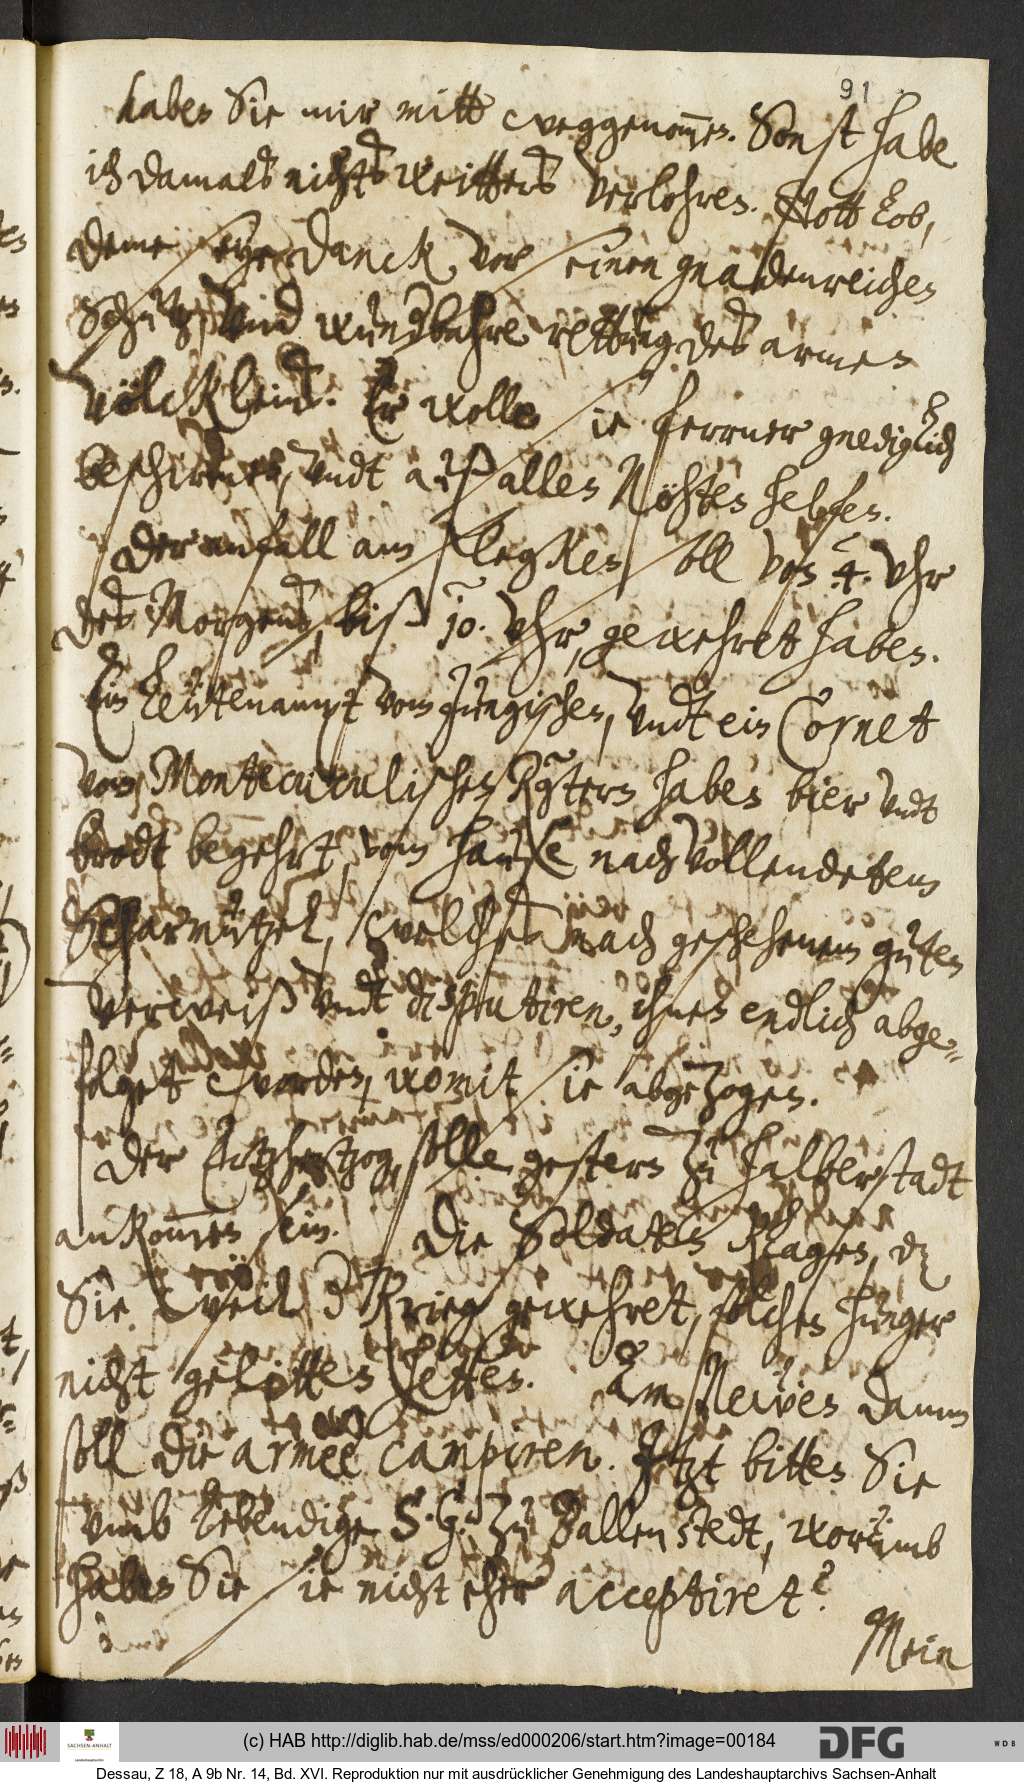 91
haben Sie mir mitt weggenom̅en. Sonst habe
ich damals nichts weitters verlohren. Gott lob,
deme seye danck, vor seinen gnadenreichen
Schutz, undt wunderbahre rettung des armen
völckleins. Er wolle sie ferrner gnediglich
beschirmen, undt auß allen Nöhten helfen.
Der anfall am flegken, soll von 4. Uhr
des Morgens, biß 10. Uhr, gewehret haben.
Ein Leütenampt vom Jungischen, undt ein Cornet
vom Montecuculischen Rgtern haben bier undt
brodt begehrt, vom hause nach vollendetem
Scharmützel, welches nach geschehenem guten
verweiß undt disputiren, ihnen endlich abge-
folget worden, womit sie abgezogen.
Der Ertzhertzog, solle gestern zu Halberstadt
ankom̅en sein. Die Soldaten klagen, dz
Sie weil der Krieg gewehret, solchen hunger
nicht gelitten hetten. Am Neüen damm
soll die armèe campiren. Itzt bitten Sie
umb lebendige S. G. zu Ballenstedt, worumb
haben Sie sie nicht eher acceptiret?
Mein
(c) HAB http://diglib.hab.de/mss/ed000206/start.htm?image=00184
DFG
WDB
SACHSEN-ANHALT
Dessau, Z 18, A 9b Nr. 14, Bd. XVI. Reproduktion nur mit ausdrücklicher Genehmigung des Landeshauptarchivs Sachsen-Anhalt